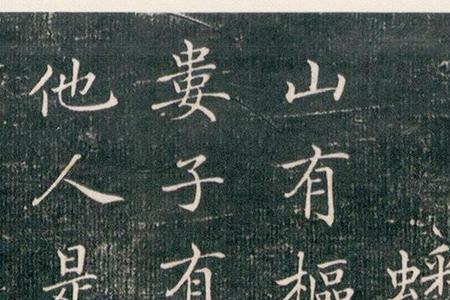 蟋
山有樞
婁子有
他人是